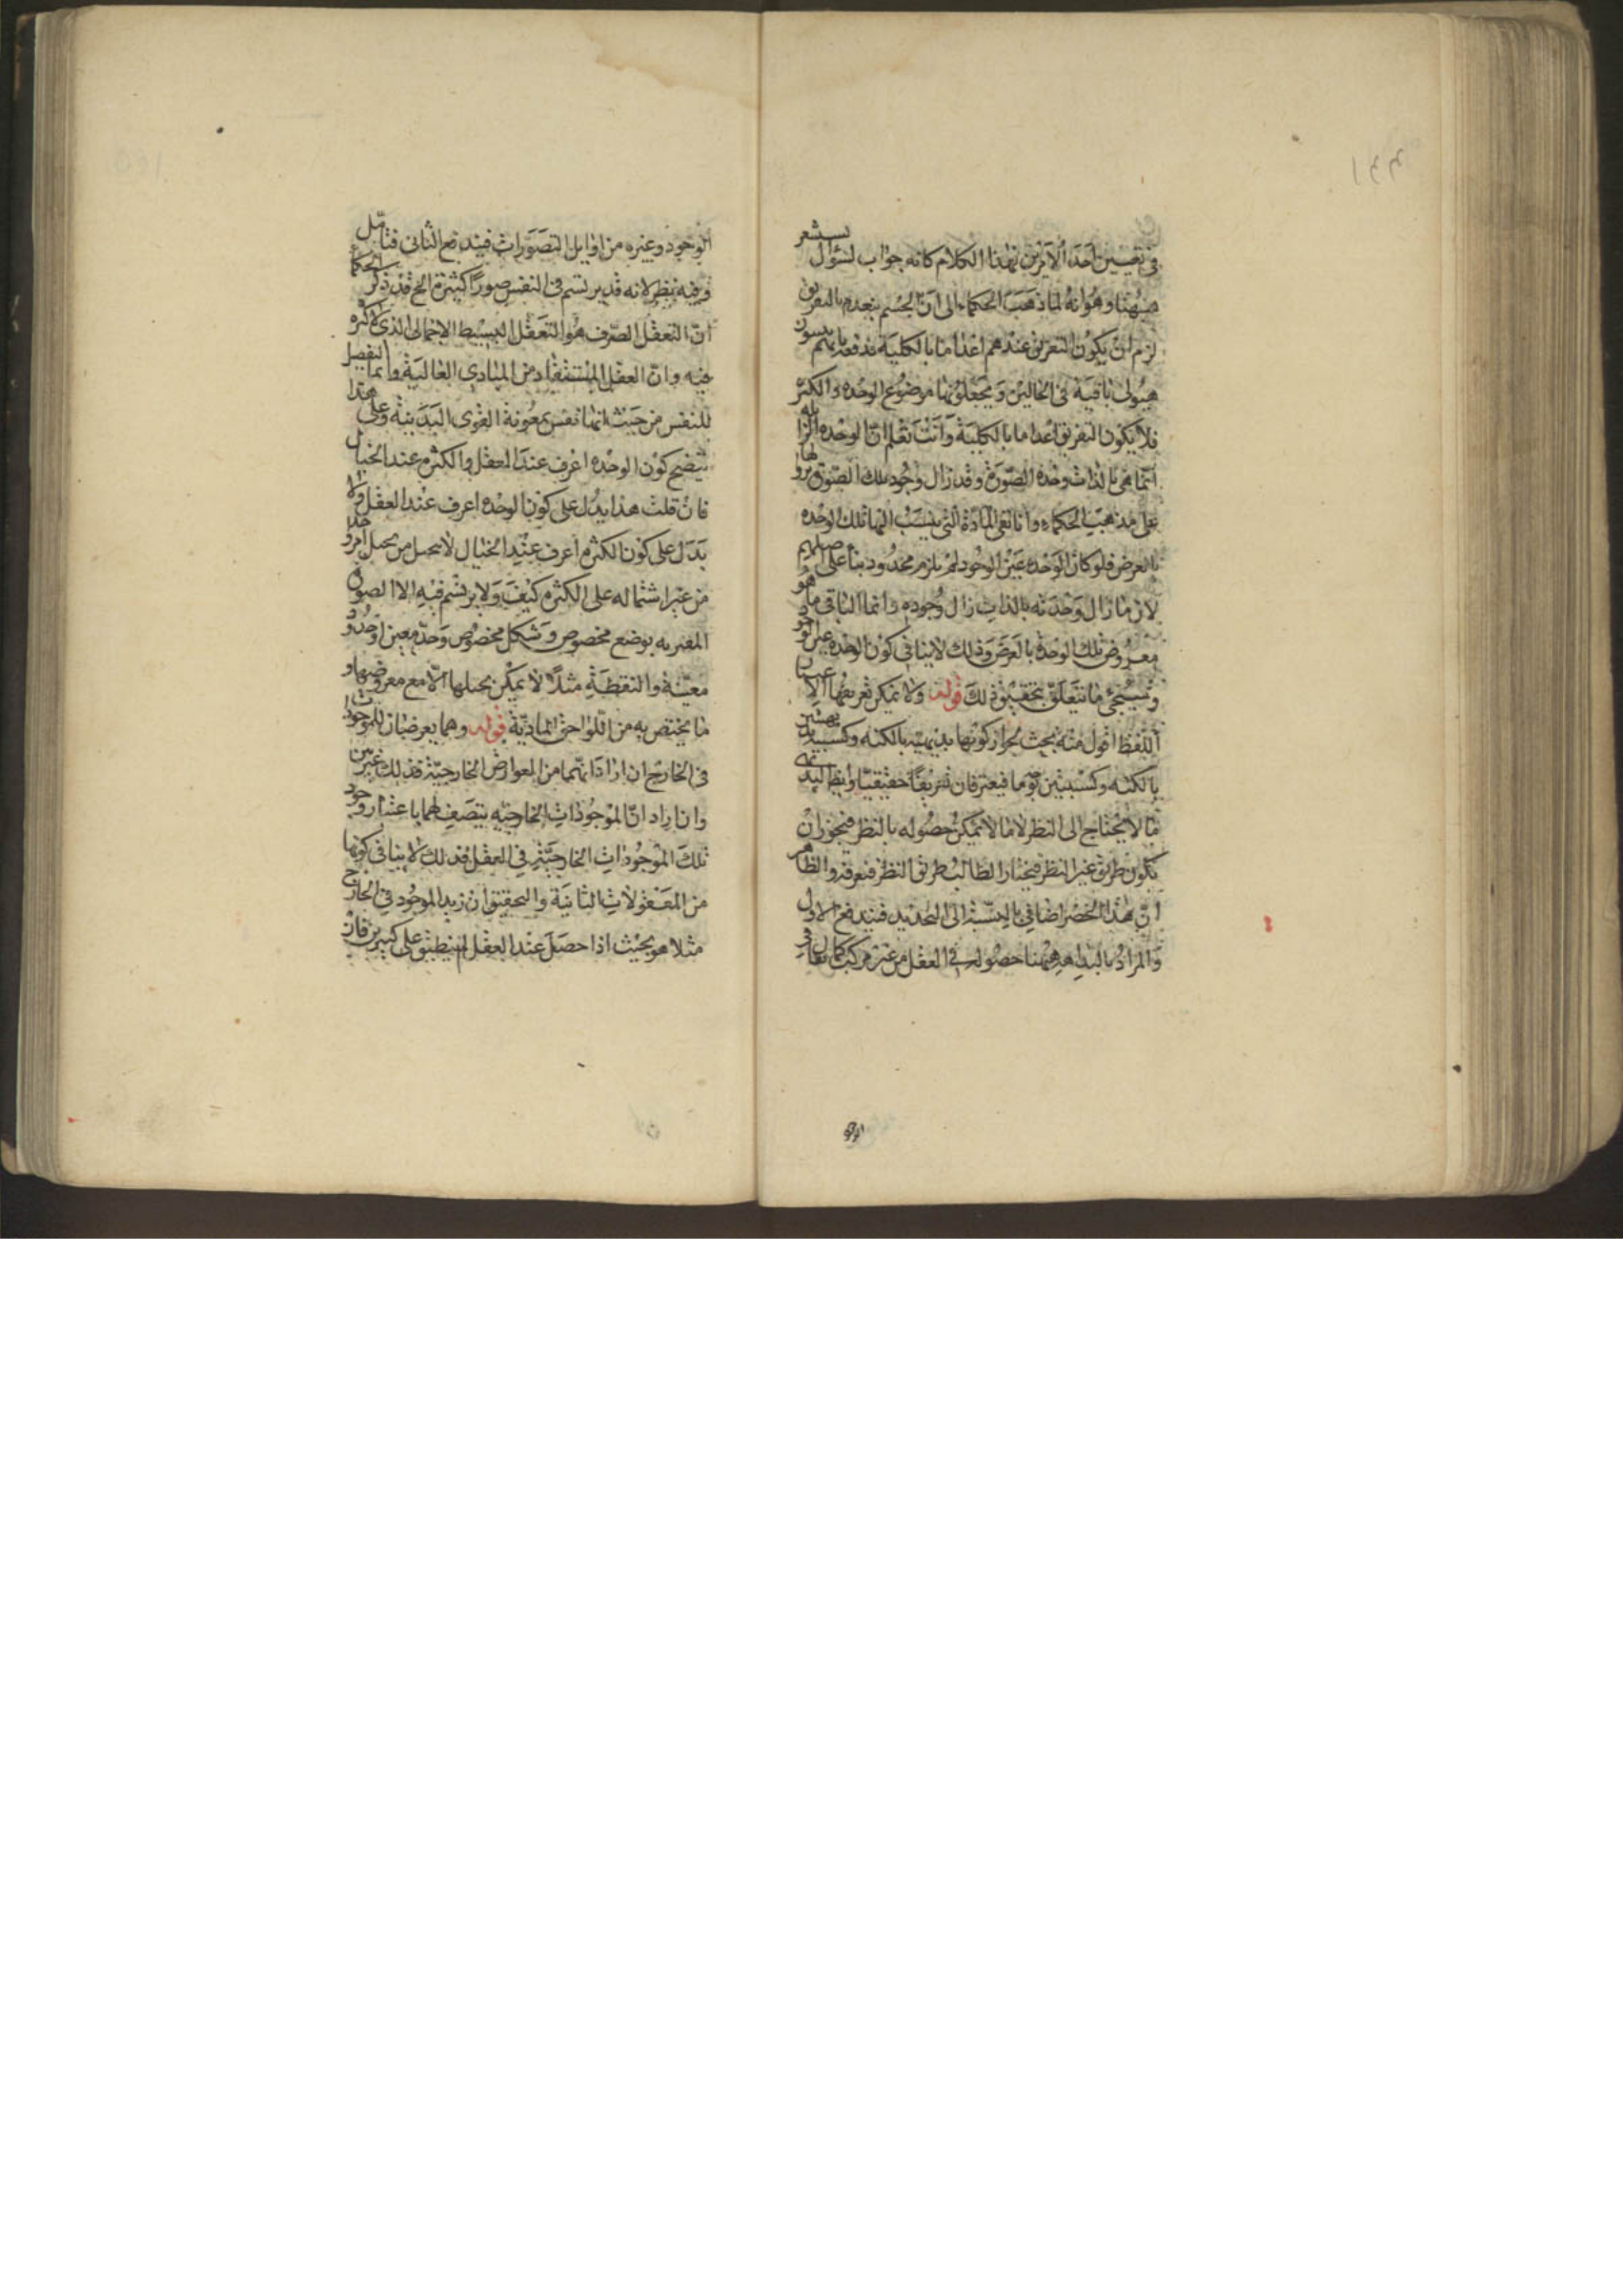 في تعيين احد الامرين بهذا الكلام كانه جواب لسؤال يستشعر
ههنا وهو انه لما ذهب الحكماء الى ان الجسم ينعدم بالتفريق
لزم ان يكون التفريق عندهم اعداما بالكلية فدفعه بانهم يثبتون
هيولى باقية في الحالين ويجعلونها موضوع الوحدة والكثرة
فلا يكون التفريق اعداما بالكلية وانت تعلم ان الوحدة الزايلة
انما هي بالذات وحدة الصورة وقد زال وجود تلك الصورة بزوالها
على مذهب الحكماء وانما بقى المادة التي ينسب اليها تلك الوحدة
بالعرض فلو كان الوحدة عين الوجود لم يلزم محذور بناء على اصلهم
لان ما زال وحدته بالذات زال وجوده وانما الباقي ما هو
معروض تلك الوحدة بالعرض وذلك لا ينافي كون الوحدة عين الوجود
وسيجئ ما يتعلق بتحقيق ذلك قوله ولا يمكن تعريفها الا
اللفظ اقول فيه بحث لجواز كونها بديهية بالكنه وكسبيتين
بالكنه وكسبيتين بوجه ما فيعترفان تعريفا حقيقيا وايضا البديهي
ما لا يحتاج الى النظر لا ما لا يمكن حصوله بالنظر فيجوز ان
يكون طريق غير النظر فيختار الطالب طريق النظر فتعرفه والظاهر
ان هذا الحصر اضافي بالنسبة الى التحديد فيندفع الاول
والمراد بالبداهة ههنا حصوله في العقل من غير كسب كما قال في
الوجود وغيره من اوايل التصورات فيندفع الثاني فتامل
وفيه نظر لانه قد يرتسم في النفس صورا كثيرة الخ قد ذكر الحكماء
ان التعقل الصرف هو التعقل البسيط الاجمالي الذي لا كثرة
فيه وان العقل المستفاد من المبادي العالية وانما التفصيل
للنفس من حيث انها نفس بمعونة القوى البدنية وعلى هذا
يتضح كون الوحدة اعرف عند العقل والكثرة عند الخيال
فان قلت هذا يدل على كون الوحدة اعرف عند العقل ولا
يدل على كون الكثرة اعرف عند الخيال
من غير اشتماله على الكثرة كيف ولا يرتسم فيه الا الصورة
بوضع مخصوص وشكل مخصوص وحد معين او حدود
معينة والنقطة مثلا لا يمكن تخيلها الا مع معروضها و
ما يختص به من اللواحق المادية قوله وهما يعرضان للموجودات
في الخارج ان اراد انهما من العوارض الخارجية فذلك غير بين
وان اراد ان الموجودات الخارجية يتصف بهما باعتبار وجود
تلك الموجودات الخارجية في العقل فذلك لا ينافي كونها
من المعقولات الثانية والتحقيق ان زيد الموجود في الخارج
مثلا هو بحيث اذا حصل عند العقل لم ينطبق على كثيرين فان